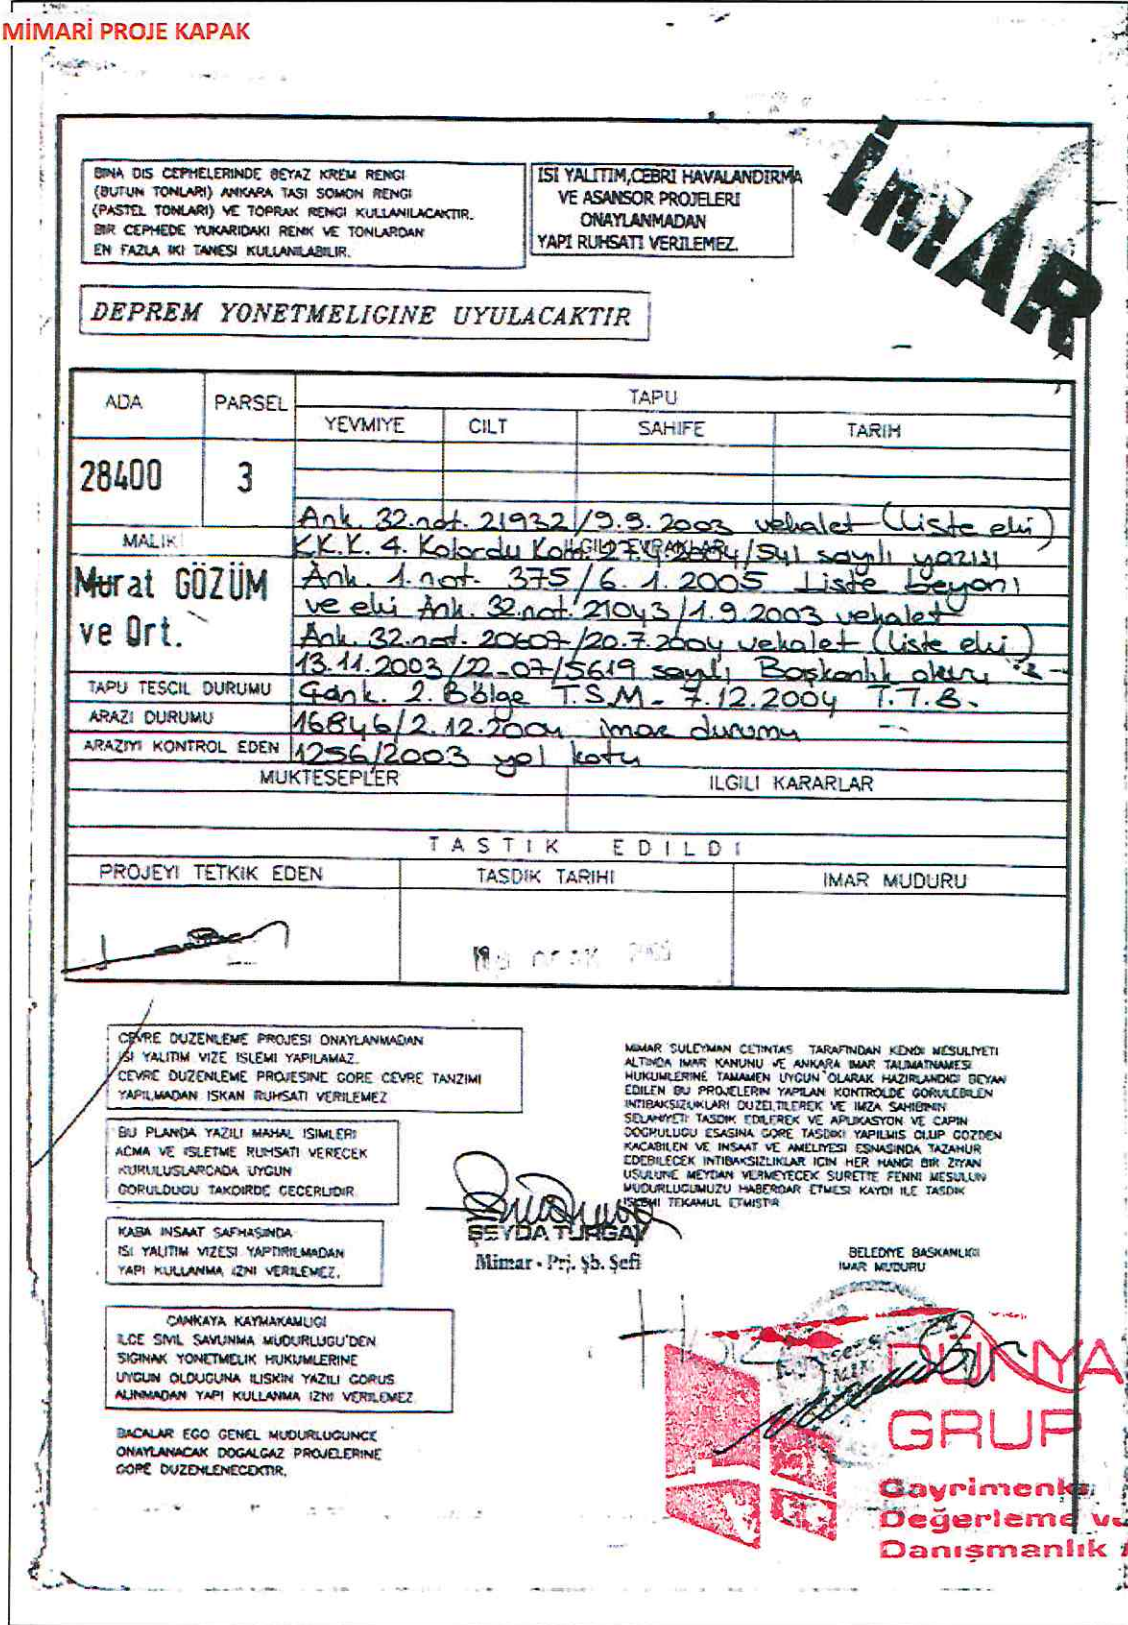 MİMARİ PROJE KAPAK
BINA DIS CEPHELERINDE BEYAZ KREM RENGI
(BUTUN TONLARI) ANKARA TASI SOMON RENGI
(PASTEL TONLARI) VE TOPRAK RENGI KULLANILACAKTIR.
BIR CEPHEDE YUKARIDAKI RENK VE TONLARDAN
EN FAZLA IKI TANESI KULLANILABILIR.
ISI YALITIM,CEBRI HAVALANDIRMA
VE ASANSOR PROJELERI
ONAYLANMADAN
YAPI RUHSATI VERILEMEZ.
İMAR
DEPREM YONETMELIGINE UYULACAKTIR
ADA PARSEL TAPU
YEVMIYE CILT SAHIFE TARIH
28400 3
Ank. 32.not. 21932/9.9.2003 vekalet (Liste eki)
MALIK
K.K.K. 4. Kolordu Kom. 27.4.2004/541 sayılı yazısı
ILGILI EVRAKLAR
Murat GÖZÜM
ve Ort.
Ank. 1.not. 375/6.1.2005 Liste beyanı
ve eki Ank. 32.not. 21043/1.9.2003 vekalet
Ank. 32.not. 20607/20.7.2004 vekalet (Liste eki)
13.11.2003/22-07/5619 sayılı Başkanlık oluru
TAPU TESCIL DURUMU Çank. 2. Bölge T.S.M. 7.12.2004 T.T.B.
ARAZI DURUMU 16846/2.12.2004 imar durumu
ARAZIYI KONTROL EDEN 1256/2003 yol kotu
MUKTESEPLER ILGILI KARARLAR
TASTIK EDILDI
PROJEYI TETKIK EDEN TASDIK TARIHI IMAR MUDURU
CEVRE DUZENLEME PROJESI ONAYLANMADAN
ISI YALITIM VIZE ISLEMI YAPILAMAZ.
CEVRE DUZENLEME PROJESINE GORE CEVRE TANZIMI
YAPILMADAN ISKAN RUHSATI VERILEMEZ
BU PLANDA YAZILI MAHAL ISIMLERI
ACMA VE ISLETME RUHSATI VERECEK
KURULUSLARCADA UYGUN
GORULDUGU TAKDIRDE GECERLIDIR
KABA INSAAT SAFHASINDA
ISI YALITIM VIZESI YAPTIRILMADAN
YAPI KULLANMA IZNI VERILEMEZ.
CANKAYA KAYMAKAMLIGI
ILCE SIVIL SAVUNMA MUDURLUGU'DEN
SIGINAK YONETMELIK HUKUMLERINE
UYGUN OLDUGUNA ILISKIN YAZILI GORUS
ALINMADAN YAPI KULLANMA IZNI VERILEMEZ
BACALAR EGO GENEL MUDURLUGUNCE
ONAYLANACAK DOGALGAZ PROJELERINE
GORE DUZENLENECEKTIR.
MIMAR SULEYMAN CETINTAS TARAFINDAN KENDI MESULIYETI
ALTINDA IMAR KANUNU VE ANKARA IMAR TALIMATNAMESI
HUKUMLERINE TAMAMEN UYGUN OLARAK HAZIRLANDIGI BEYAN
EDILEN BU PROJELERIN YAPILAN KONTROLDE GORULEBILEN
INTIBAKSIZLIKLARI DUZELTILEREK VE IMZA SAHIBININ
SELAHIYETI TASDIK EDILEREK VE APLIKASYON VE CAPIN
DOGRULUGU ESASINA GORE TASDIKI YAPILMIS OLUP GOZDEN
KACABILEN VE INSAAT VE AMELIYESI ESNASINDA TAZAHUR
EDEBILECEK INTIBAKSIZLIKLAR ICIN HER HANGI BIR ZIYAN
USULUNE MEYDAN VERMEYECEK SURETTE FENNI MESULUN
MUDURLUGUMUZU HABERDAR ETMESI KAYDI ILE TASDIK
ISLEMI TEKAMUL ETMISTIR
ŞEYDA TURGAY
Mimar - Prj. Şb. Şefi
BELEDIYE BASKANLIGI
IMAR MUDURU
DÜNYA
GRUP
Gayrimenk
Değerleme ve
Danışmanlık